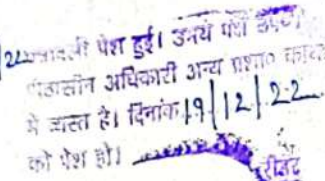 22 पत्रावली पेश हुई। उभय पक्ष
पीठासीन अधिकारी अन्य प्रशा० कार्य
मे व्यस्त है। दिनांक 19/12/22
को पेश हो।
रीडर